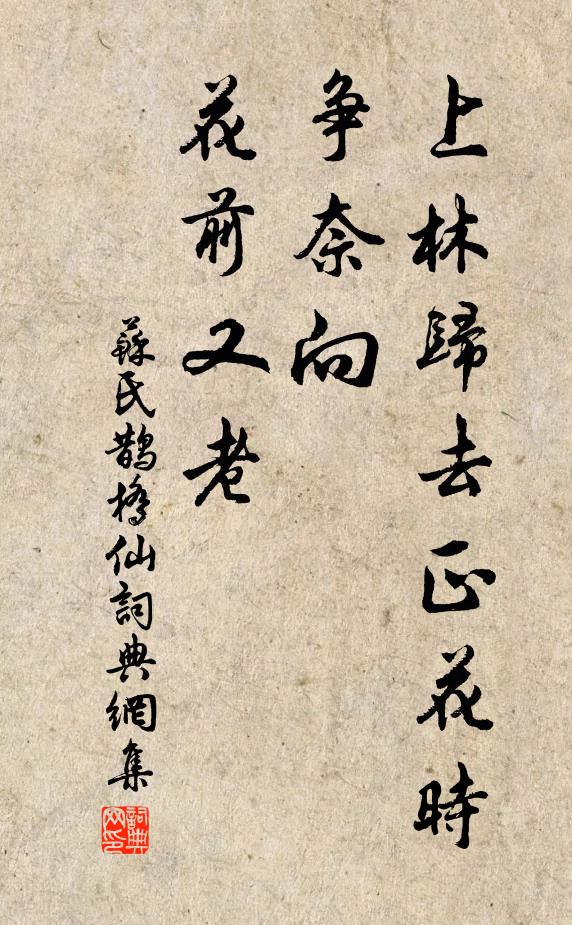 上林歸去正花時
争奈向
花前又老
蘇氏鵲橋仙詞典網集
詞典网印